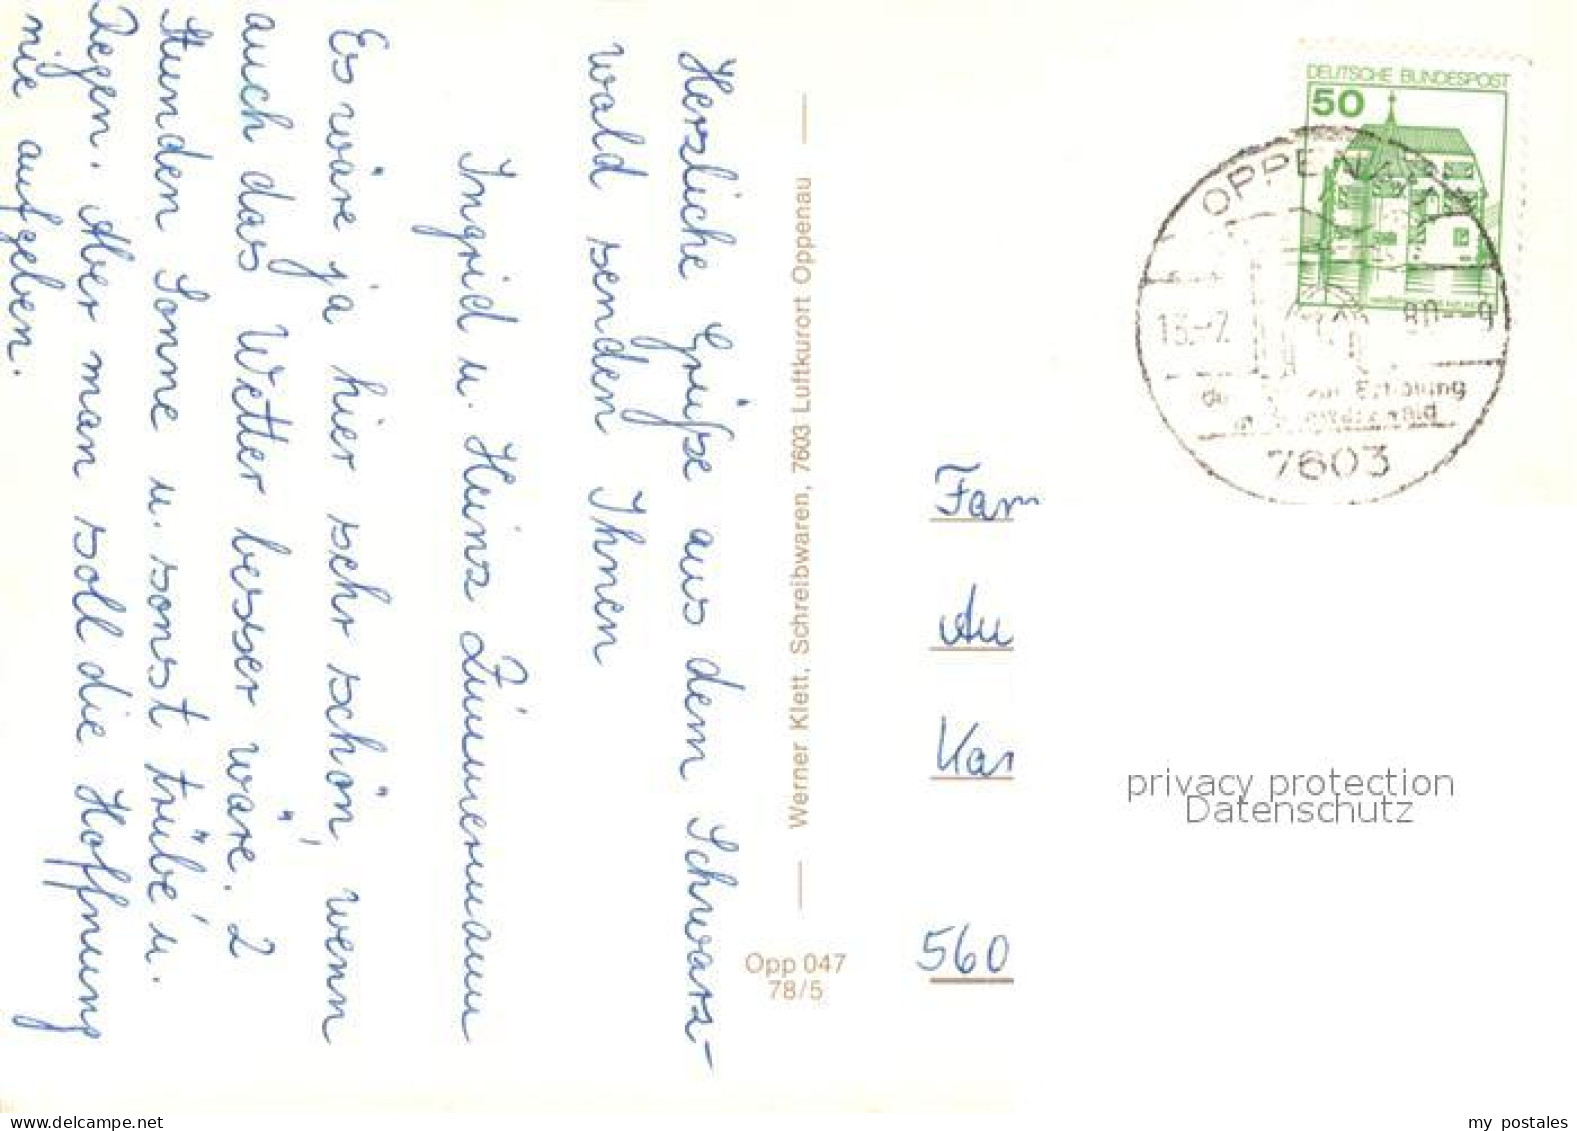 Herzliche Grüße aus dem Schwarz-
wald senden Ihnen
Ingrid u. Heinz Zimmermann
Es wäre ja hier sehr schön, wenn
auch das Wetter besser wäre. 2
Stunden Sonne u. sonst trübe u.
Regen. Aber man soll die Hoffnung
nie aufgeben.
Werner Klett, Schreibwaren, 7603 Luftkurort Oppenau
Opp 047
78/5
DEUTSCHE BUNDESPOST
50
OPPENAU
80--9
7603
Fam
Au
Kar
560
privacy protection
Datenschutz
my postales